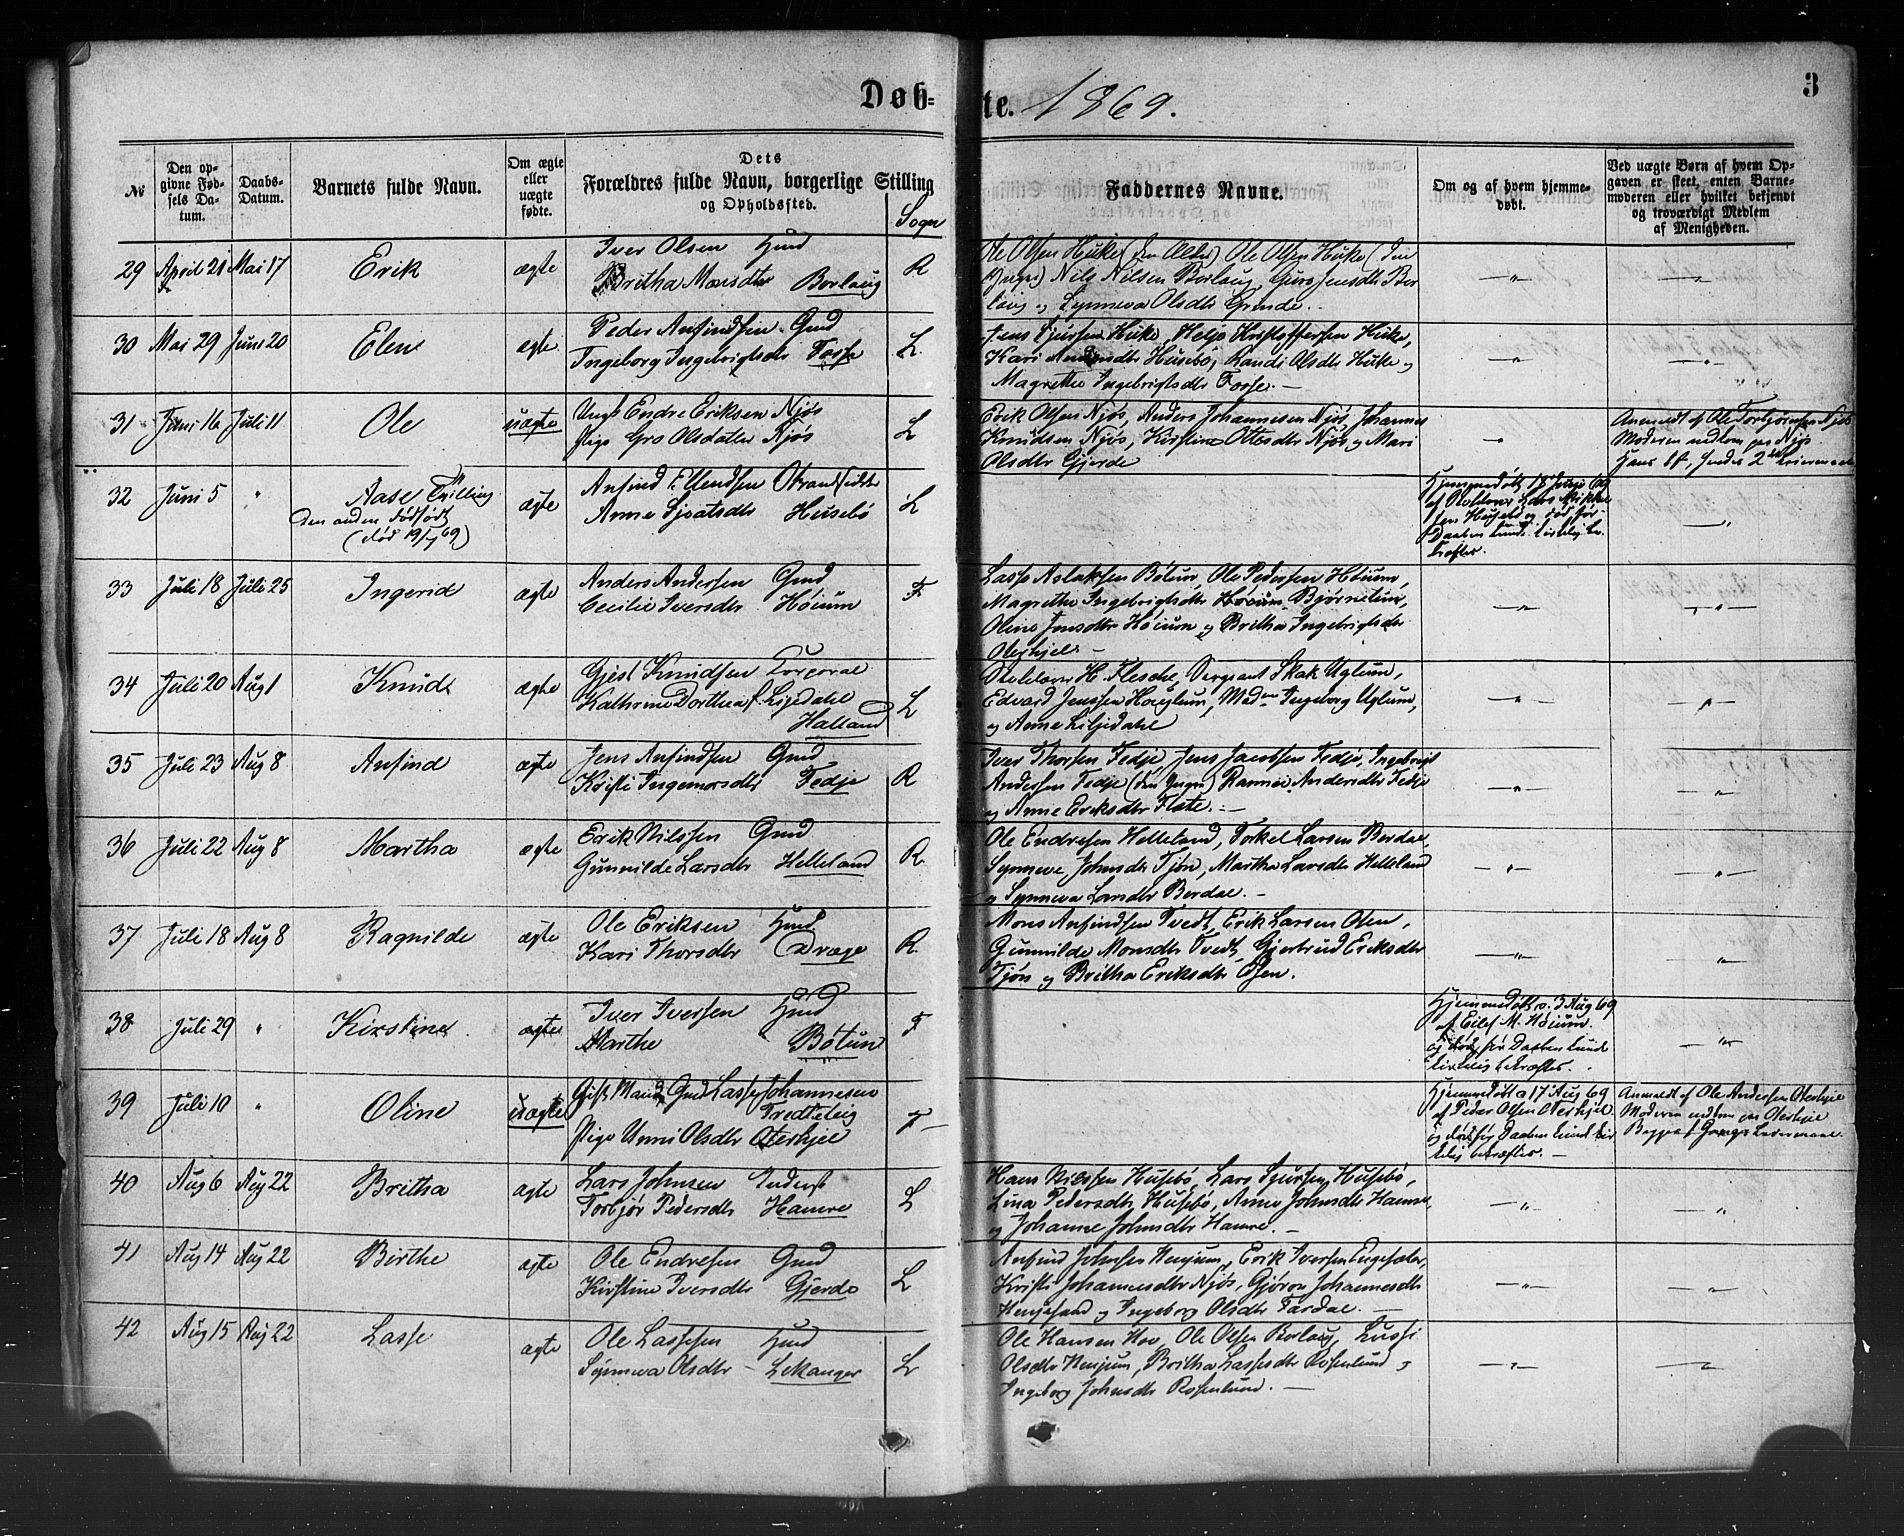 Døb=
te. 1869.
3
No
Den opgivne Fødsels Datum.
Daabs-Datum.
Barnets fulde Navn.
Om ægte eller uægte fødte.
Dets
Forældres fulde Navn, borgerlige Stilling
og Opholdssted.
Sogn
Faddernes Navne.
Om og af hvem hjemmedøbt.
Ved uægte Børn af hvem Opgaven er skeet, enten Barnemoderen eller hvilket bekjendt og troværdigt Medlem af Menigheden.
29 April 21 Mai 17 Erik ægte Iver Olsen Hmd
Britha Monsdtr Borlaug R
Ole Olsen Huke (den Ældre) Ole Olsen Huke (den
Yngre) Nils Nilsen Borlaug, Guro Jensdtr Bor
laug og Synneva Olsdtr Grinde.
30 Mai 29 Juni 20 Elen ægte Peder Anfindsen Gmd
Ingeborg Ingebrigtsdtr Fosse L
Jens Sjursen Huke, Helje Kristoffersen Huke,
Kari Husebø, Randi Olsdtr Huke og
Magrethe Ingebrigtsdtr Fosse.
31 Juni 16 Juli 11 Ole uægte Ungk Endre Eriksen Njøs
Pige Gro Olsdatter Njøs L
Erik Olsen Njøs, Anders Johannesen Njøs, Johannes
Knudsen Njøs, Kirstine Ottesdtr Njøs og Mari
Olsdtr Gjerde
Anmeldt af Ole Torbjørnsen Njøs
Moderen
Hans 1st, hendes 2det Leiermaal
32 Juni 5 " Aase Tvilling
Den anden dødfødt
(død 19/7 69)
ægte Anfind Ellendsen Strandsidder
Anne Sjvatsdtr Husebø L
Hjemmedøbt 18 69
af Lars Mikkel
sen Husebø og død før
Daaben kunde kirkelig be
kræftes.
33 Juli 18 Juli 25 Ingerid ægte Anders Andersen Gmd
Cecilie Iversdtr Høium F
Lasse Aslaksen Bøtun, Ole Pedersen Høium,
Magrethe Ingebrigtsdtr Bjørnetun,
Oline Jensdtr Høium og Britha Ingebrigtsdtr
34 Juli 20 Aug 1 Knud ægte Gjest Knudsen Corporal
Kathrine Dorthea f. Liljedahl
Halland L
H. Flesche, Sergeant Skak Uglum,
Edvard Jenssen Houglum, Madm Ingeborg Uglum,
og Anne Liljedahl
35 Juli 23 Aug 8 Anfind ægte Jens Anfindsen Gmd
Kristi Ingemorsdtr Fedje R
Iver Thorsen Fedje, Jens Jacobsen Fedje, Ingebrigt
Andersen Fedje (den Yngre) Andersdtr Fedje
og Anne Eriksdtr Flete.
36 Juli 22 Aug 8 Martha ægte Erik Nilssen Gmd
Gunnilde Larsdtr Helleland R
Ole Endresen Helleland, Torkel Larsen Berdal,
Synneve Johnsdtr Tjøn, Martha Larsdtr Helleland
og Synneva Larsdtr Berdal.
37 Juli 18 Aug 8 Ragnilde ægte Ole Eriksen Hmd
Kari Thorsdtr Dræge R
Mons Anfindsen Tvedt, Erik Larsen Osen,
Gunnilde Monsdtr Tvedt, Gjertrud Eriksdtr
Tjøn og Britha Eriksdtr Osen.
38 Juli 29 " Kirstine ægte Iver Iversen Hmd
Marthe Bøtun F
Hjemmedøbt 3 Aug 69
af Eilef M. Høium
og død før Daaben kunde
kirkelig bekræftes.
39 Juli 10 " Oline uægte Gift Mand Gmd Lasse Johannesen
Pige Unni Olsdtr Oterhjel F
Hjemmedøbt 17 Aug 69
af Peder Olsen Oterhjel
og død før Daaben kunde kir
kelig bekræftes.
Anmeldt af Ole Andersen Oterhjel
Moderen Oterhjel
Begges 1ste Gangs Leiermaal.
40 Aug 6 Aug 22 Britha ægte Lars Johnsen Inderst
Torbjør Pedersdtr Hamre L
Hans Nilssen Husebø, Lars Sjursen Husebø,
Lina Pedersdtr Husebø, Anne Johnsdtr Hamre,
og Johanne Johnsdtr Hamre.
41 Aug 14 Aug 22 Birthe ægte Ole Endresen Gmd
Kirstine Iversdtr Gjerde L
Anfind Johnsen Henjum, Erik Iversen Engesæter,
Kristi Johannesdtr Njøs, Johannesdtr
Henjesand og Ingeborg Olsdtr Tardal.
42 Aug 15 Aug 22 Lasse ægte Ole Lassesen Hmd
Synneva Olsdtr Lekanger L
Ole Hansen Hov, Ole Olsen Borlaug,
Olsdtr Henjum, Britha Lassesdtr Rosenlund og
Ingeborg Johnsdtr Rosenlund.